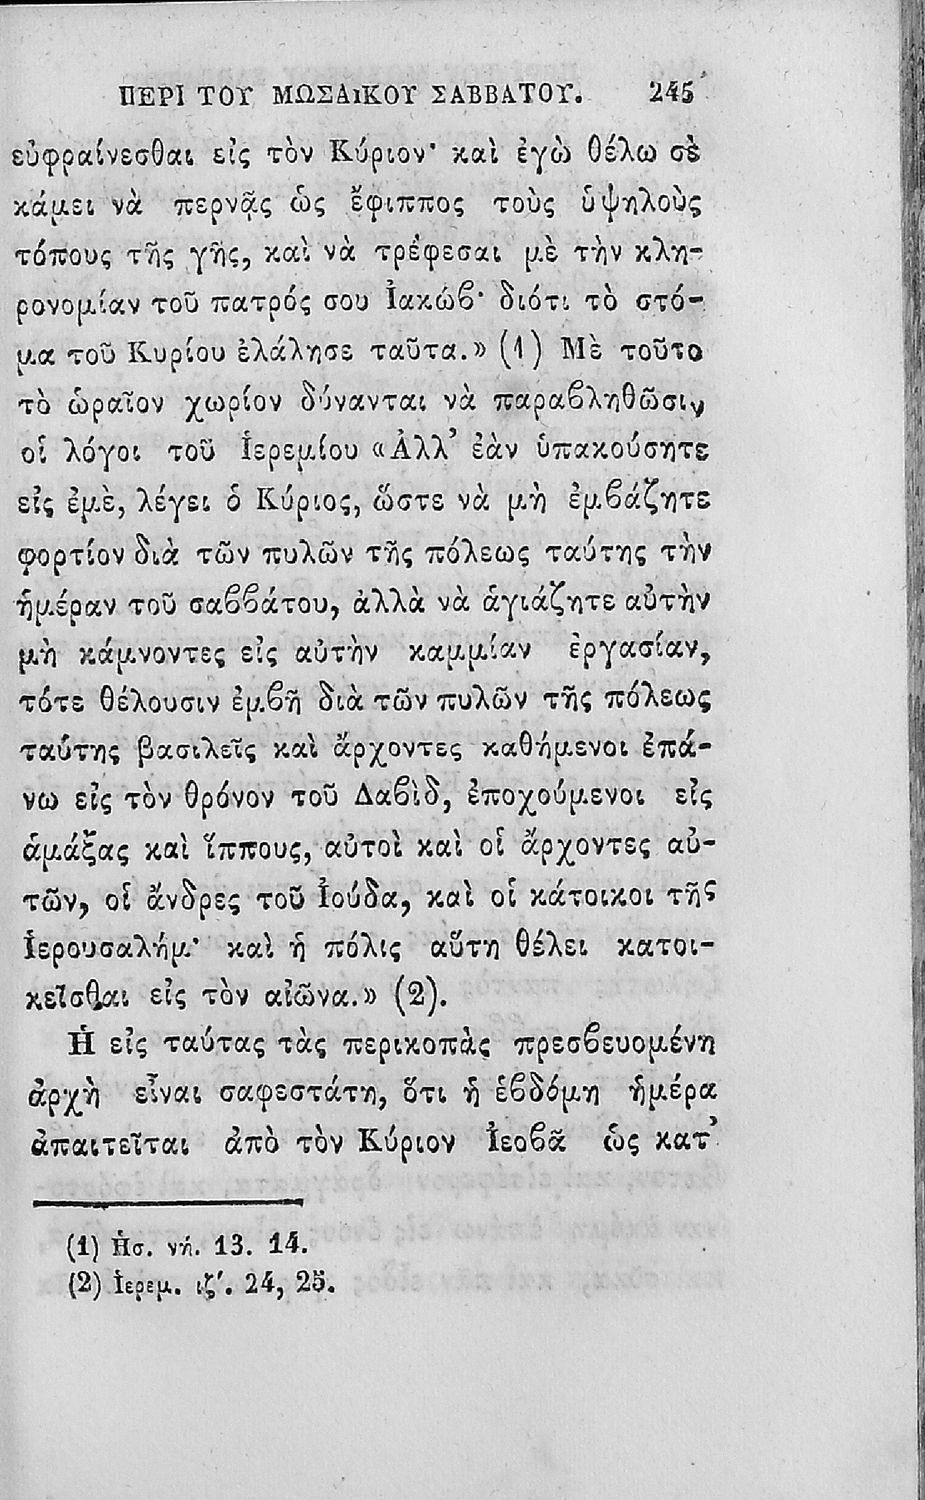 ΠΕΡΙ ΤΟΥ ΜΩΣΑΙΚΟΥ ΣΑΒΒΑΤΟΥ. 245
εὐφραίνεσθαι εἰς τὸν Κύριον· καὶ ἐγὼ θέλω σὲ
κάμει νὰ περνᾷς ὡς ἔφιππος τοὺς ὑψηλοὺς
τόπους τῆς γῆς, καὶ νὰ τρέφεσαι μὲ τὴν κλη-
ρονομίαν τοῦ πατρός σου Ἰακώβ· διότι τὸ στό-
μα τοῦ Κυρίου ἐλάλησε ταῦτα.» (1) Μὲ τοῦτο
τὸ ὡραῖον χωρίον δύνανται νὰ παραϐληθῶσιν
οἱ λόγοι τοῦ Ἱερεμίου «Ἀλλ’ ἐὰν ὑπακούσητε
εἰς ἐμὲ, λέγει ὁ Κύριος, ὥστε νὰ μὴ ἐμϐάζητε
φορτίον διὰ τῶν πυλῶν τῆς πόλεως ταύτης τὴν
ἡμέραν τοῦ σαϐϐάτου, ἀλλὰ νὰ ἁγιάζητε αὐτὴν
μὴ κάμνοντες εἰς αὐτὴν καμμίαν ἐργασίαν,
τότε θέλουσιν ἐμϐῆ διὰ τῶν πυλῶν τῆς πόλεως
ταύτης βασιλεῖς καὶ ἄρχοντες καθήμενοι ἐπά-
νω εἰς τὸν θρόνον τοῦ Δαϐὶδ, ἐποχούμενοι εἰς
ἁμάξας καὶ ἵππους, αὐτοὶ καὶ οἱ ἄρχοντες αὐ-
τῶν, οἱ ἄνδρες τοῦ Ἰούδα, καὶ οἱ κάτοικοι τῆς
Ἱερουσαλήμ· καὶ ἡ πόλις αὕτη θέλει κατοι-
κεῖσθαι εἰς τὸν αἰῶνα.» (2).
Ἡ εἰς ταύτας τὰς περικοπὰς πρεσϐευομένη
ἀρχὴ εἶναι σαφεστάτη, ὅτι ἡ ἑϐδόμη ἡμέρα
ἀπαιτεῖται ἀπὸ τὸν Κύριον Ἰεοϐᾶ ὡς κατ’
(1) Ἡσ. νή. 13. 14.
(2) Ἱερεμ. ιζ’. 24, 25.